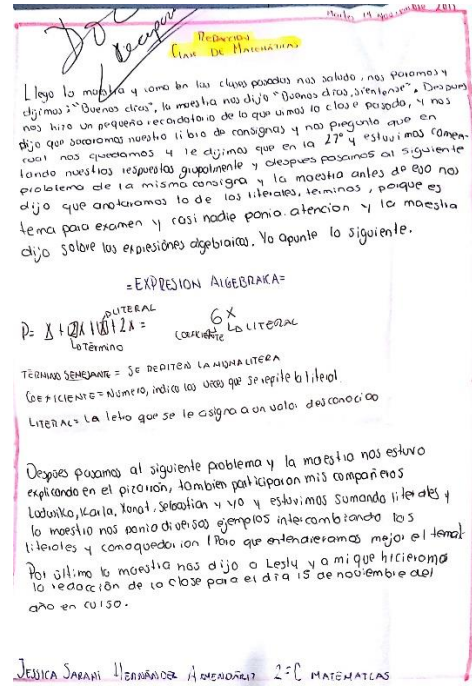 Martes 14 Noviembre 2017
REDACCIÓN
CLASE DE MATEMÁTICAS
Llego la maestra y como en las clases pasadas nos saludo, nos paramos y
dijimos: "Buenos dias", la maestra nos dijo "Buenos dias, sientense". Despues
nos hizo un pequeño recordatorio de lo que vimos la clase pasada, y nos
dijo que sacaramos nuestro libro de consignas y nos pregunto que en
cual nos quedamos y le dijimos que en la 27° y estuvimos comen
tando nuestras respuestas grupalmente y despues pasamos al siguiente
problema de la misma consigna y la maestra antes de eso nos
dijo que anotaramos lo de las literales, terminos, porque es
tema para examen y casi nadie ponia atencion y la maestra
dijo sobre las expresiones algebraicas. Yo apunte lo siguiente.
=EXPRESION ALGEBRAICA=
LITERAL
6x
Término
COEFICIENTE LITERAL
TÉRMINO SEMEJANTE = SE REPITEN LA MISMA LITERA
COEFICIENTE = Número, indica las veces que se repite la literal.
LITERAL = La letra que se le asigna a un valor desconocido
Despues pasamos al siguiente problema y la maestra nos estuvo
explicando en el pizarrón, tambien participaron mis compañeros
Karla, Sebastian y yo y estuvimos sumando literales y
la maestra nos ponia diversos ejemplos intercambiando las
literales y como quedarian para que entendieramos mejor el tema
Por último la maestra nos dijo a Lesly y a mi que hicieramos
la redacción de la clase para el día 15 de noviembre del
año en curso.
JESSICA SARAHI HERNÁNDEZ ARMENDÁRIZ 2°C MATEMÁTICAS